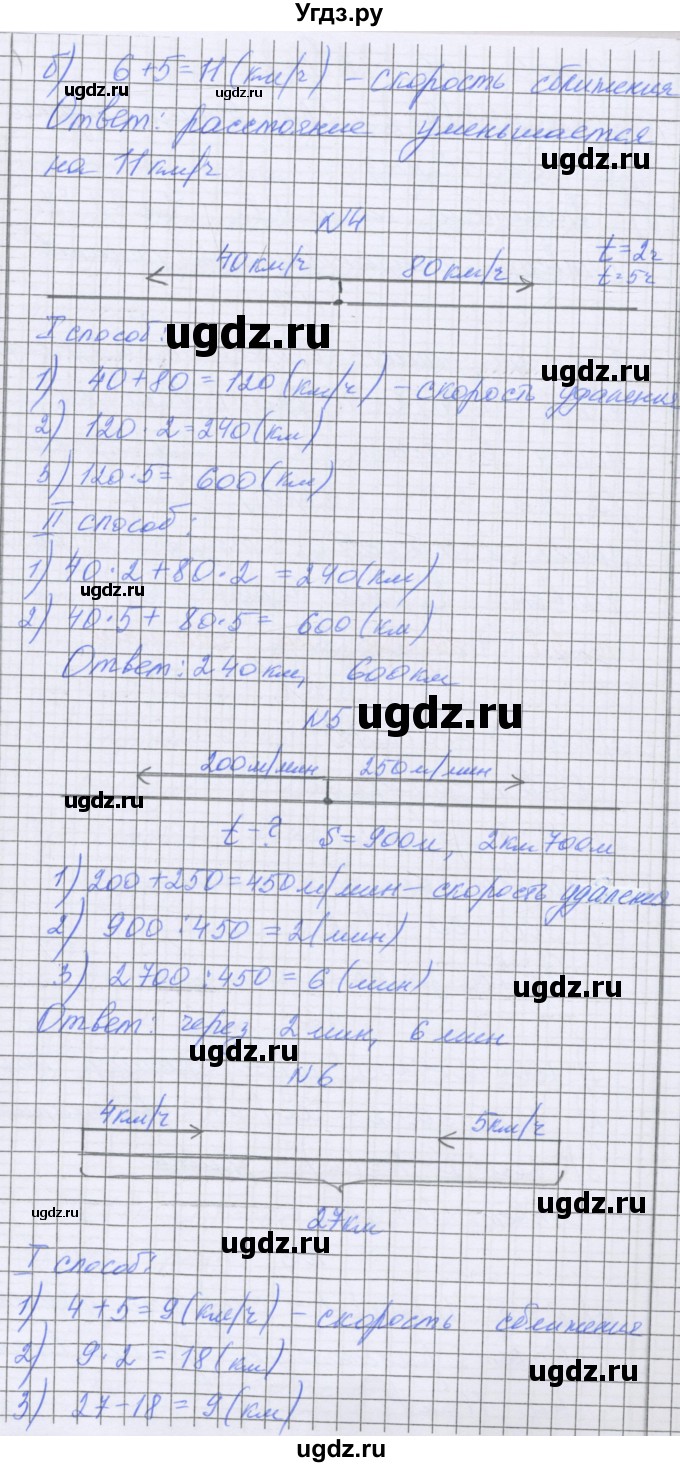 Угдз.ру
б) 6+5=11(км/ч) – скорость сближения
Ответ: расстояние уменьшается
на 11км/ч
ugdz.ru
ugdz.ru
ugdz.ru
N4
40км/ч 80км/ч t=2ч
t=5ч
I способ:
ugdz.ru
ugdz.ru
1) 40+80=120(км/ч) – скорость удаления
2) 120·2=240(км)
3) 120·5= 600(км)
II способ:
1) 40·2+80·2=240(км)
ugdz.ru
2) 40·5+80·5= 600(км)
Ответ: 240км, 600км
N5
ugdz.ru
200м/мин 250м/мин
ugdz.ru
t-? S=900м, 2км700м
1) 200+250=450м/мин – скорость удаления
2) 900:450=2(мин)
3) 2700:450=6(мин)
ugdz.ru
Ответ: через 2мин, 6мин
ugdz.ru
N6
4км/ч 5км/ч
ugdz.ru
ugdz.ru
27км
ugdz.ru
I способ:
1) 4+5=9(км/ч) – скорость сближения
2) 9·2=18(км)
ugdz.ru
3) 27-18=9(км)
ugdz.ru